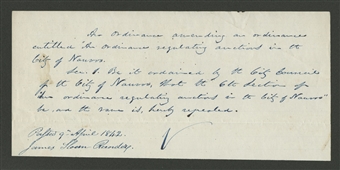 An Ordinance amending an ordinance
entitled An Ordinance regulating auctions in the
City of Nauvoo.
Sec. 1. Be it ordained by the City Council
of the City of Nauvoo, that the 6th section of
"An ordinance regulating auctions in the City of Nauvoo"
be and the same is, hereby repealed.
Passed 9th April 1842.
James Sloan Recorder